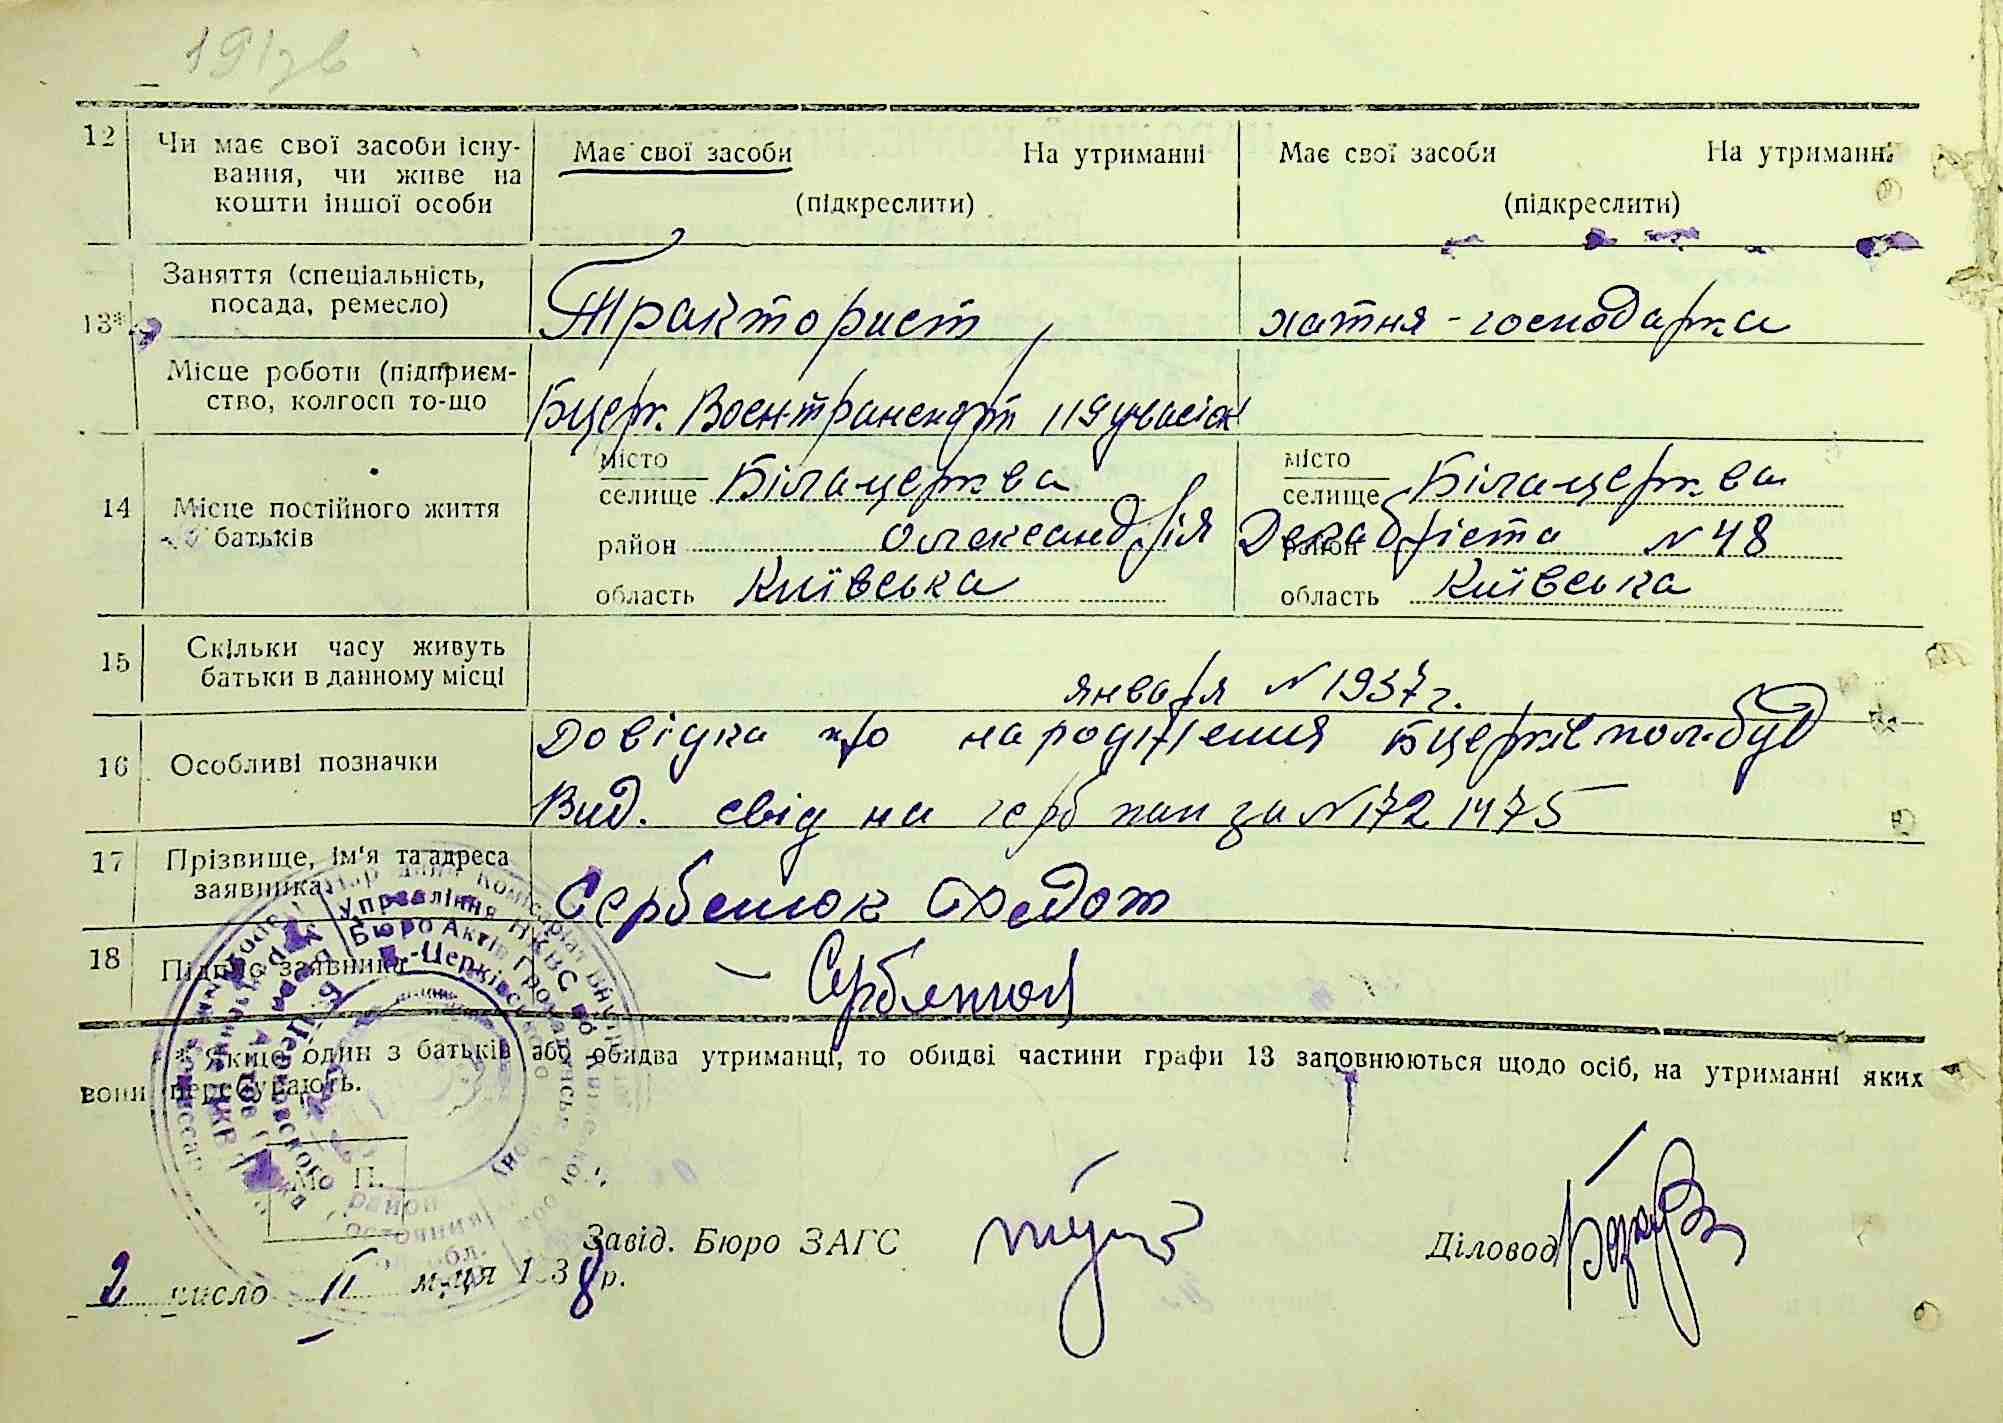 12 Чи має свої засоби існу-
вання, чи живе на
кошти іншої особи
Має свої засоби На утриманні
(підкреслити)
Має свої засоби На утриманні
(підкреслити)
13* Заняття (спеціальність,
посада, ремесло)
Тракторист
хатня - господарка
Місце роботи (підприєм-
ство, колгосп то-що
Бцерк. Воєнтранспорт 119
14 Місце постійного життя
батьків
місто
селище Білацерква
район Олександрія
область Київська
місто
селище Білацерква
район Декабріста N 48
область Київська
15 Скільки часу живуть
батьки в данному місці
января N 1937 г.
16 Особливі позначки
Довідка про народження
Вид. свід на герб пап за N 172 1475
17 Прізвище, ім'я та адреса
заявника
Сербенюк Федот
18 Підпис заявника
Сербенюк
* Якщо один з батьків або обидва утриманці, то обидві частини графи 13 заповнюються щодо осіб, на утриманні яких
вони перебувають.
Управління НКВС по Київській
Бюро Актів Громадянськ
Б.-Церківського
М. П.
Завід. Бюро ЗАГС
Діловод
2 число II м-ця 1938 р.